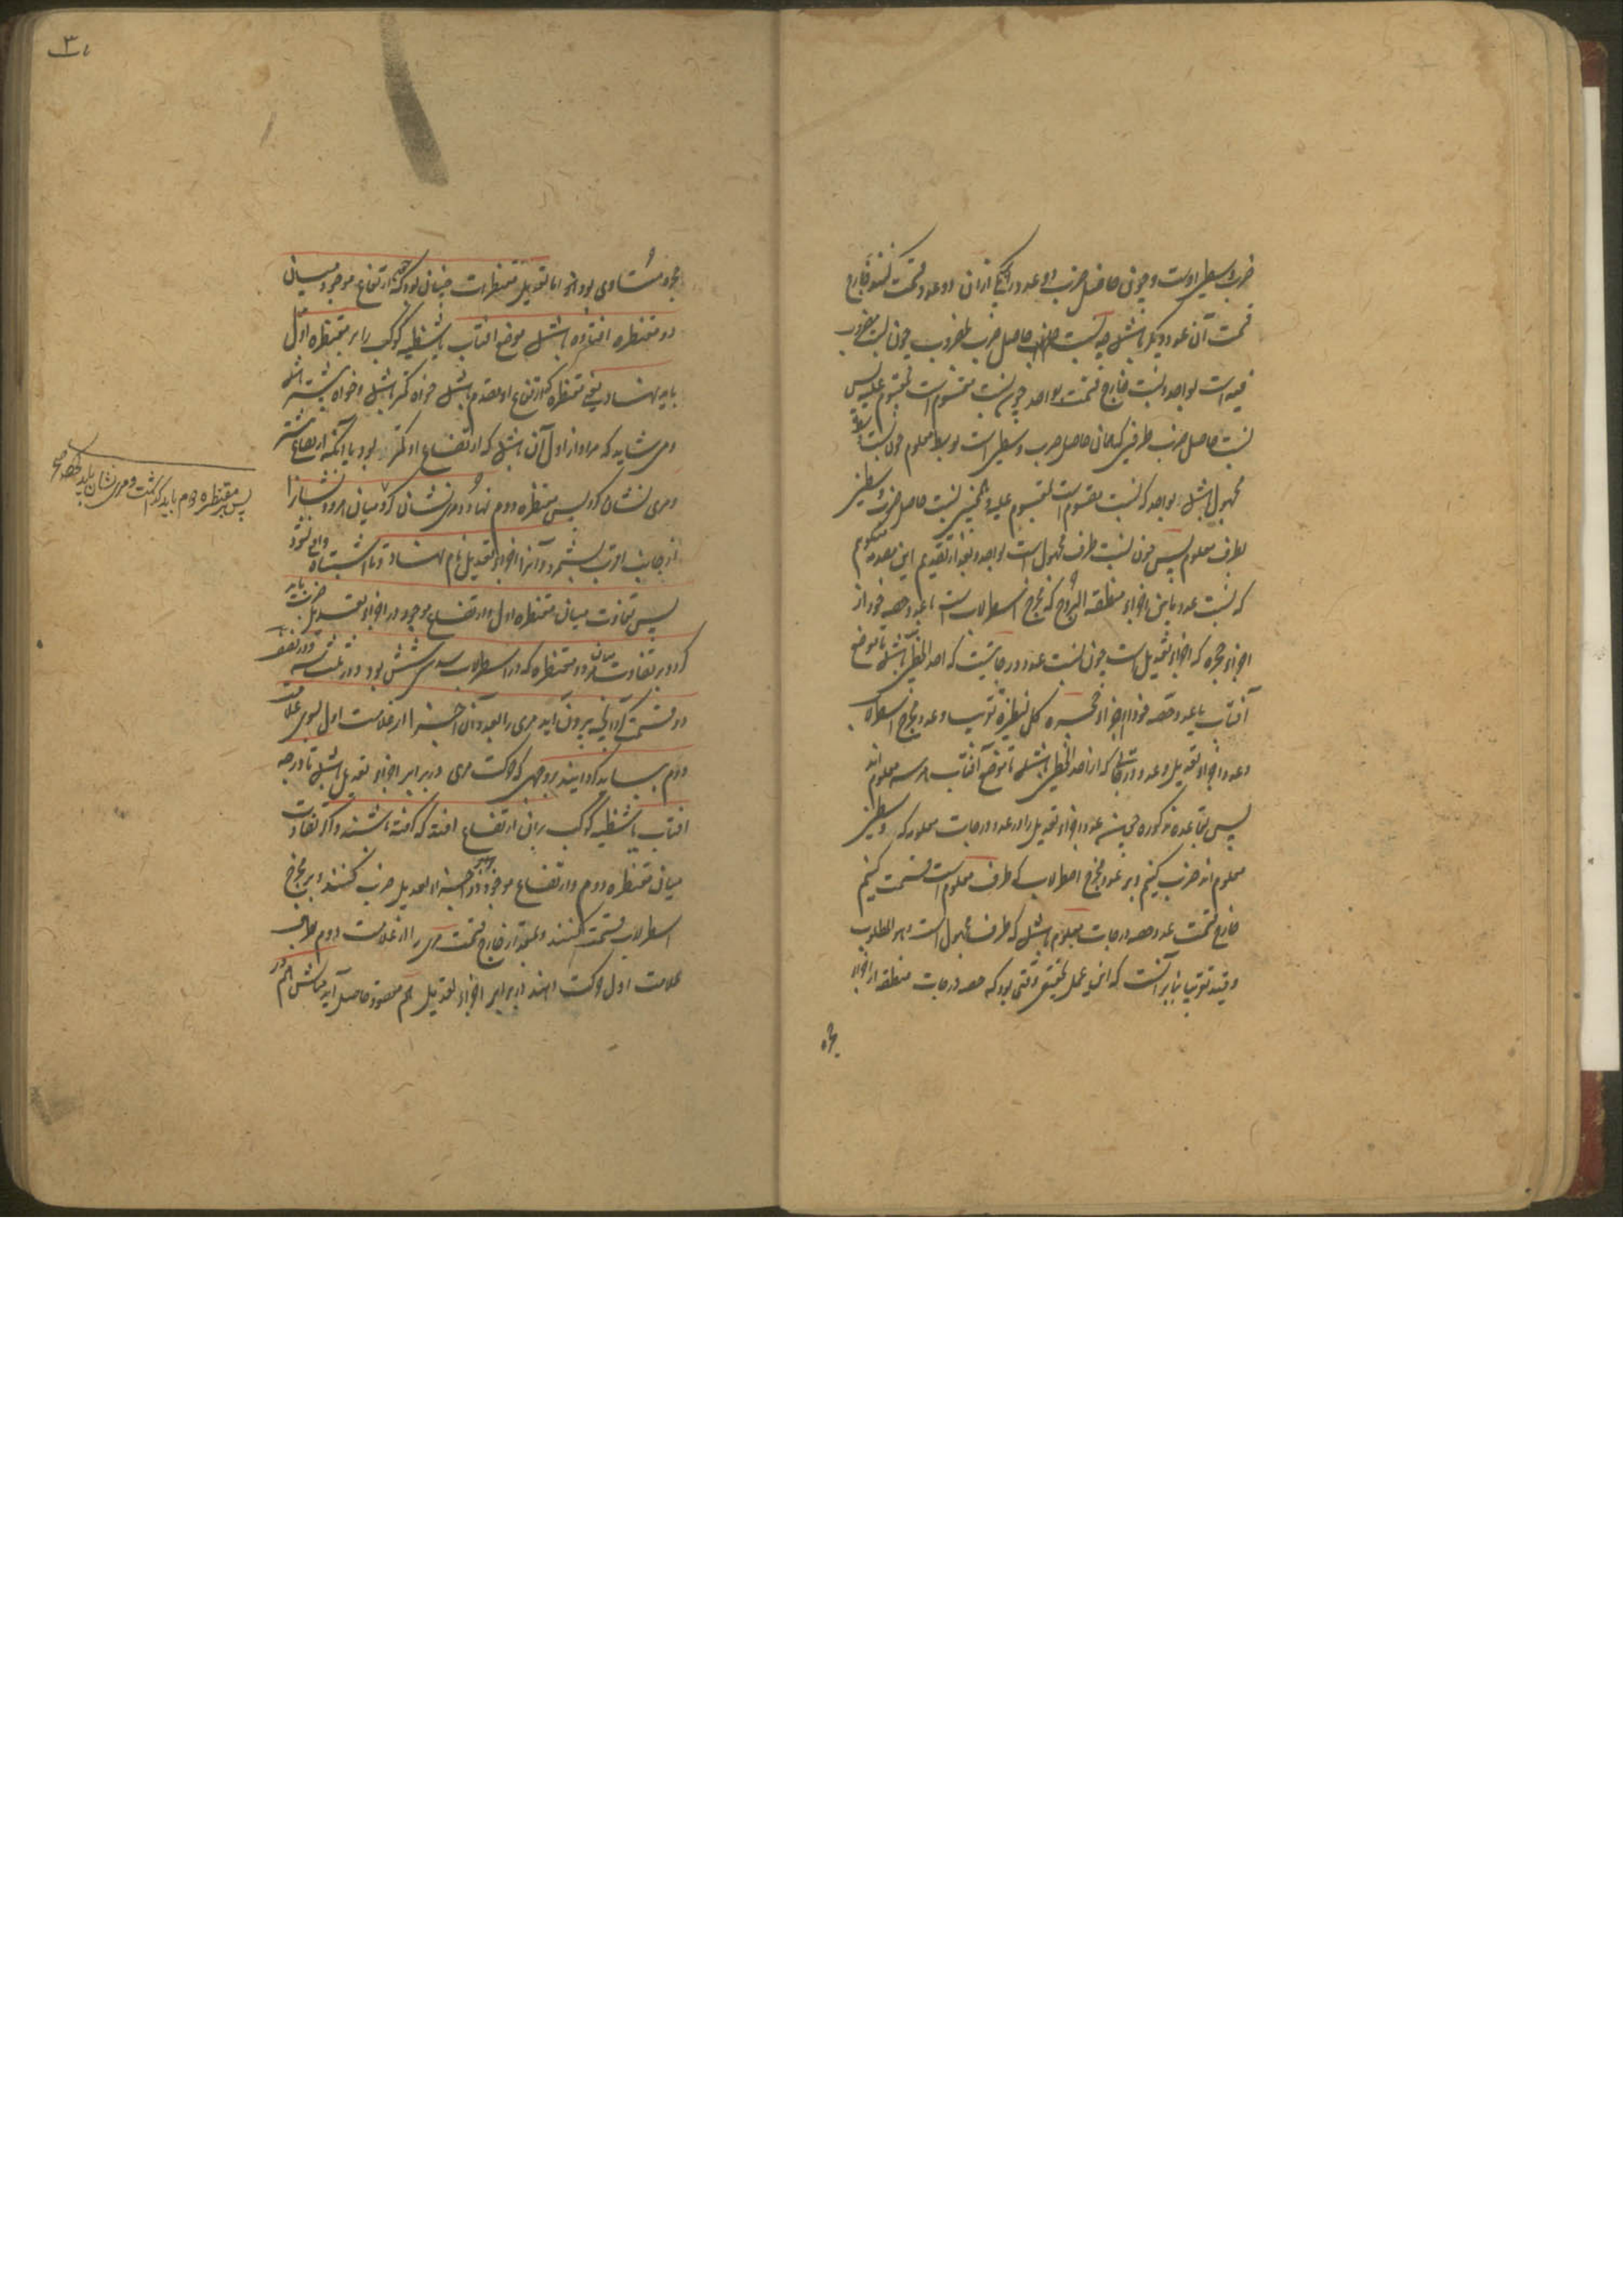 ضرب وسطین است و چون حاصل ضرب دو عدد در یکی از آن دو عدد قسمت کنند خارج
قسمت آن عدد دیگر باشد چه نسبت حاصل ضرب بمضروب چون نسبت مضروب
فیه است بواحد و نسبت خارج قسمت بواحد چون نسبت مقسوم است بمقسوم علیه پس
نسبت حاصل ضرب طرفین که همان حاصل ضرب وسطین است بوسط معلوم چون نسبت
مجهول باشد بواحد که نسبت مقسوم است بمقسوم علیه و همچنین نسبت حاصل ضرب وسطین
بطرف معلوم پس چون نسبت طرف مجهول است بواحد و بعد از تقدیم این مقدمه میگویم
که نسبت عدد مابین اجزاء منطقة البروج که مخرج اسطرلاب است با عدد حصه خود از
اجزاء حجره که اجزاء تعدیل است چون نسبت عدد درجاتیست که احد الخطین باشد تا موضع
آفتاب با عدد حصه خود از اجزاء حجره کل نظیره تقریبا و عدد مخرج اسطرلاب
و عدد اجزاء تعدیل و عدد درجات که از احد الخطین باشد تا موضع آفتاب هر سه معلوم اند
پس بقاعده مذکوره عدد اجزاء تعدیل را در عدد درجات معلومه که وسطین
معلوم اند ضرب کنیم و بر عدد مخرج اسطرلاب که طرف معلوم است قسمت کنیم
خارج قسمت عدد حصه درجات معلوم باشد که طرف مجهول است و هو المطلوب
و قید تقریبا بنابر آنست که این عمل تحقیق وقتی بود که حصه درجات منطقه از اجزاء
حجره
۳۱
حجره متساوی بود اما تعدیل مقنطرات چنان بود که چون ارتفاع موجود میان
دو مقنطره افتاده باشد موضع آفتاب یا شظیه کوکب را بر مقنطره اول
باید نهاد یعنی مقنطره که ارتفاع او مقدم باشد خواه کمتر باشد و خواه بیشتر
و می شاید که مراد از اول آن باشد که ارتفاع او کمتر بود یا آنکه ارتفاع بیشتر
و مری نشان کرد پس بر مقنطره دوم نهاد و مری نشان کرد و میان هر دو نشان را
از جانب اقرب بشمرد و آنرا اجزاء تعدیل نام نهاد تا اشتباه واقع نشود
پس تفاوت میان مقنطره اول و ارتفاع موجود در اجزاء تعدیل ضرب باید
کرد و بر تفاوت میان دو مقنطره که در اسطرلاب سدسی شش بود و در ثلثی سه و در نصفی
دو قسمت کرد آنچه بیرون آید مری را بعدد آن اجزا از علامت اول بسوی علامت
دوم بباید گردانید بر وجهی که حرکت مری در برابر اجزاء تعدیل باشد تا درجه
آفتاب یا شظیه کوکب بر آن ارتفاع افتد که گرفته باشند و اگر تفاوت
میان مقنطره دوم و ارتفاع موجود را در اجزاء تعدیل ضرب کنند و بر مخرج
اسطرلاب قسمت کنند و بمقدار خارج قسمت مری را از علامت دوم بجانب
علامت اول حرکت دهند در برابر اجزاء تعدیل هم مقصود حاصل آید مثالش هم در
پس بر مقنطره دوم باید گذاشت و مری نشان باید کرد صح